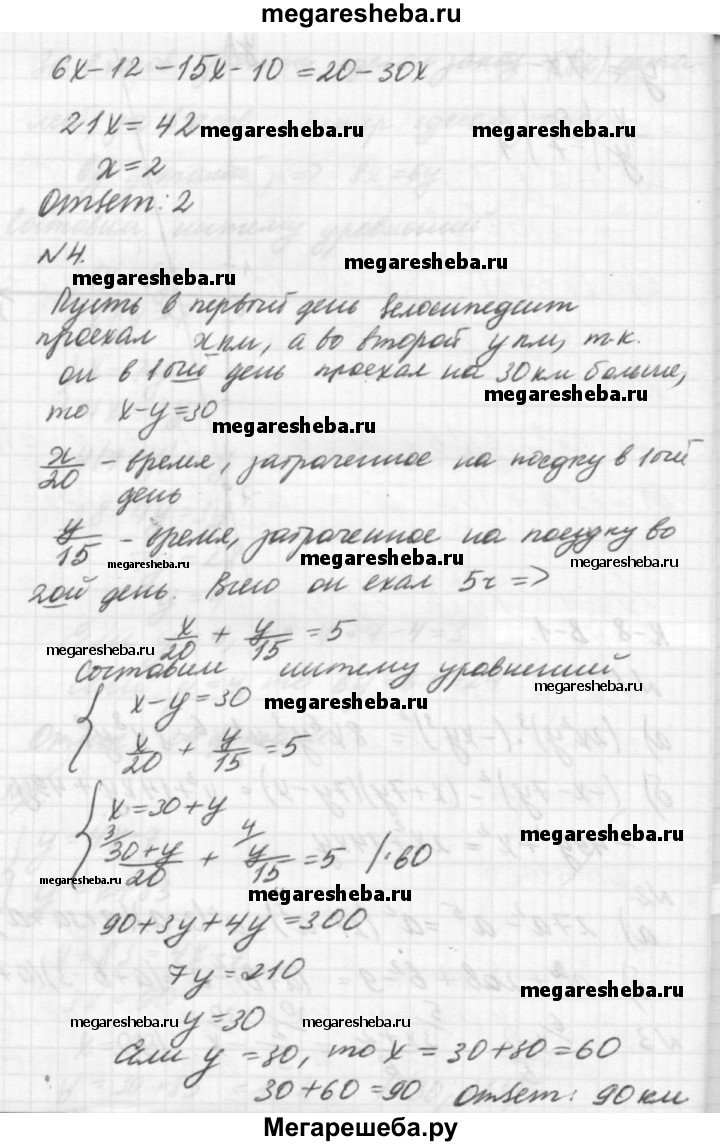 megaresheba.ru
6x-12-15x-10=20-30x
21x=42
megaresheba.ru megaresheba.ru
x=2
Ответ: 2
N4.
megaresheba.ru
Пусть в первый день велосипедист
проехал x км, а во второй y км, т.к.
он в 1ый день проехал на 30 км больше,
megaresheba.ru
то x-y=30
megaresheba.ru
x/20 - время, затраченное на поездку в 1ый
день
y/15 - время, затраченное на поездку во
megaresheba.ru megaresheba.ru megaresheba.ru
2ой день. Всего он ехал 5ч =>
megaresheba.ru x/20 + y/15 = 5
Составим систему уравнений
megaresheba.ru
{ x-y=30 megaresheba.ru
x/20 + y/15 = 5
{ x=30+y
megaresheba.ru
3/ 30+y/20 + 4/ y/15 = 5 /·60
megaresheba.ru megaresheba.ru
90+3y+4y=300
7y=210
megaresheba.ru
megaresheba.ru y=30 megaresheba.ru
Если y=30, то x=30+30=60
30+60=90 Ответ: 90 км
Мегарешеба.ру